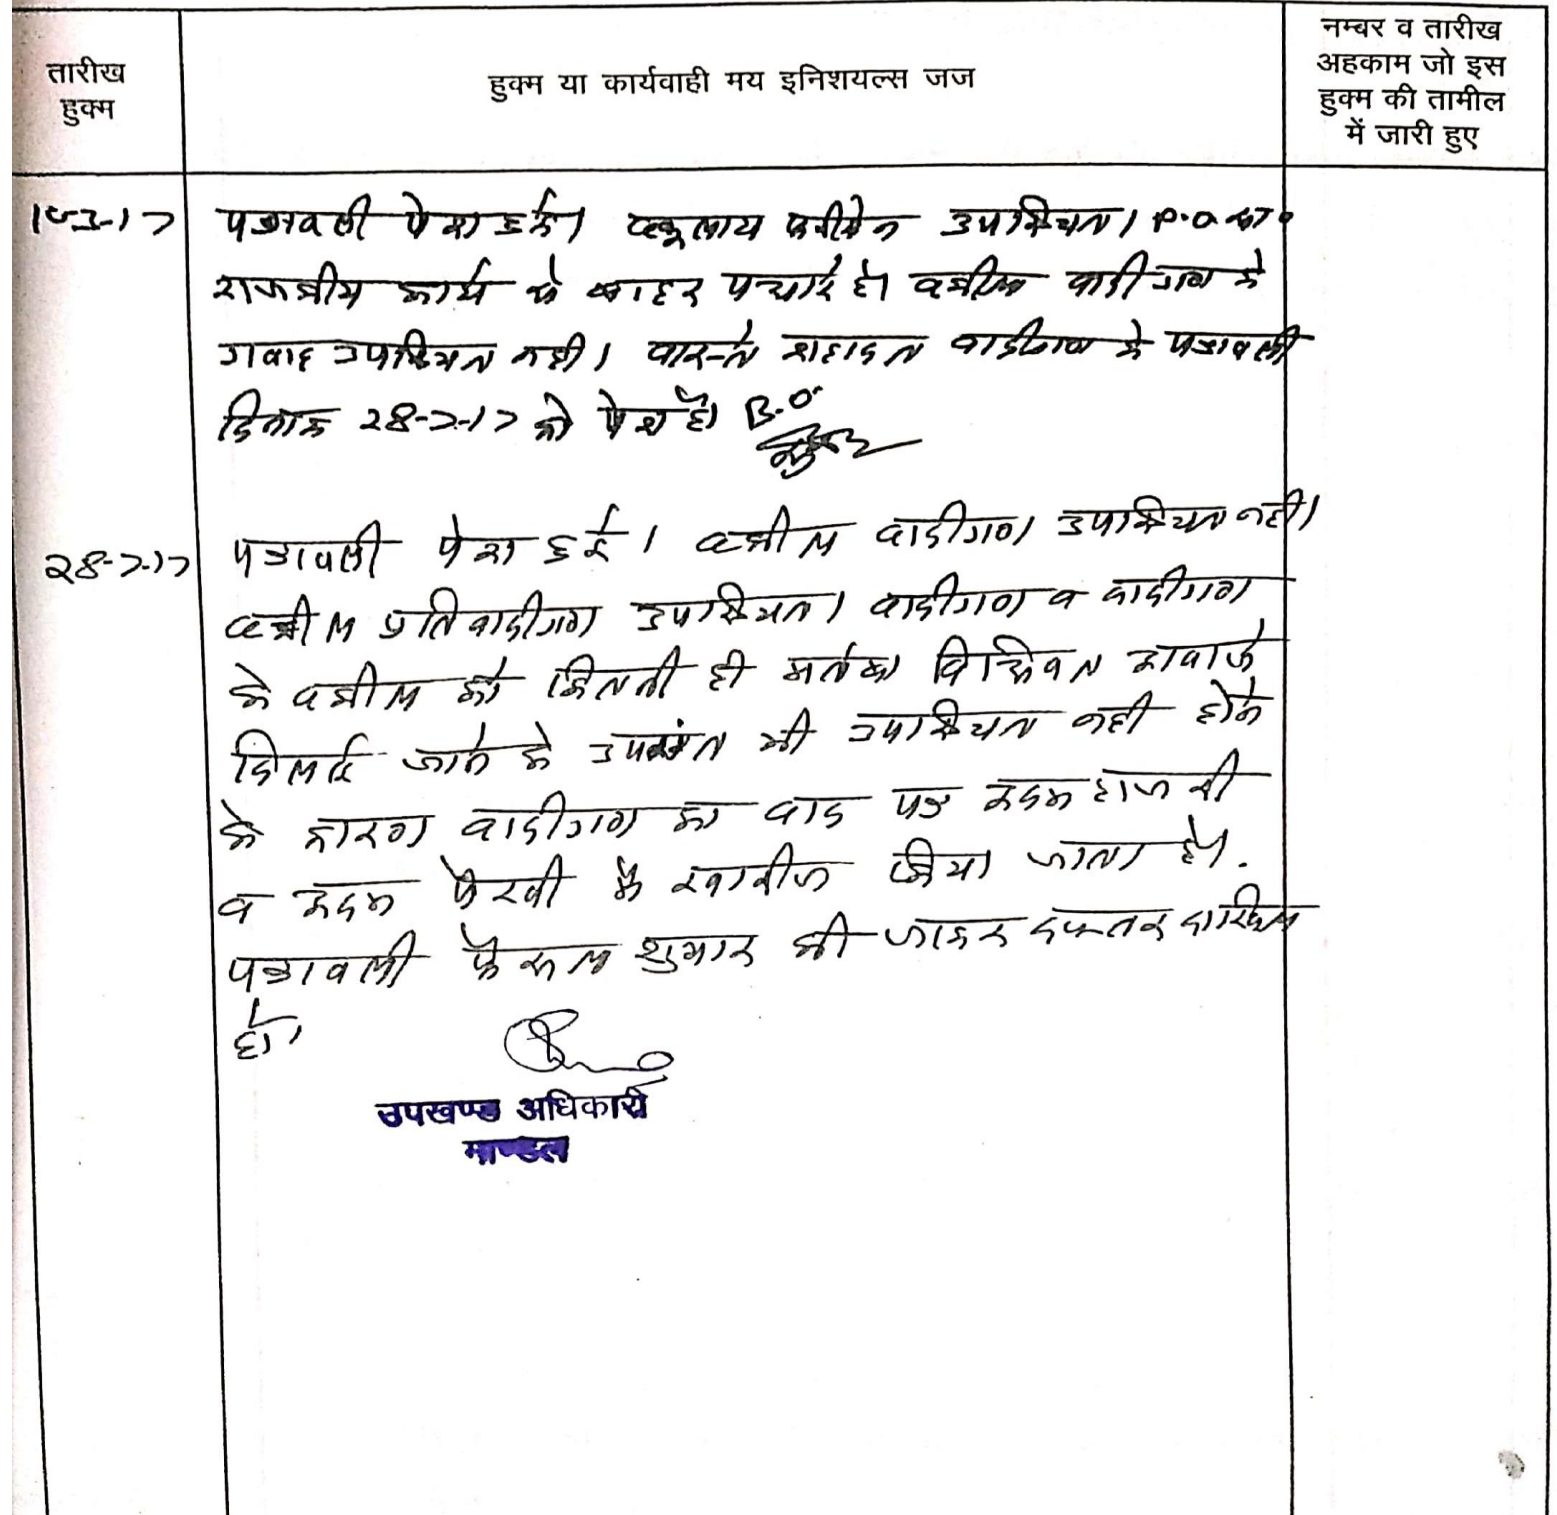 तारीख
हुक्म
हुक्म या कार्यवाही मय इनिशयल्स जज
नम्बर व तारीख
अहकाम जो इस
हुक्म की तामील
में जारी हुए
पत्रावली पेश हुई। वकूलाय फरीकेन उपस्थित। P.O.
राजकीय कार्य से बाहर पधारे है। वकील वादीगण के
गवाह उपस्थित नही। वास्ते शहादत वादीगण के पत्रावली
दिनांक 28-7-17 को पेश हो। B.O.
28-7-17
पत्रावली पेश हुई। वकील वादीगण उपस्थित नही।
वकील प्रतिवादीगण उपस्थित। वादीगण व वादीगण
के वकील को कितनी ही मर्तबा विधिवत आवाजे
दिलाई जाने के उपरांत भी उपस्थित नही होने
के कारण वादीगण का वाद पत्र अदम हाजरी
व अदम पैरवी मे खारीज किया जाता है।
पत्रावली फैसल शुमार की जाकर दफ्तर दाखिल
हो।
उपखण्ड अधिकारी
माण्डल